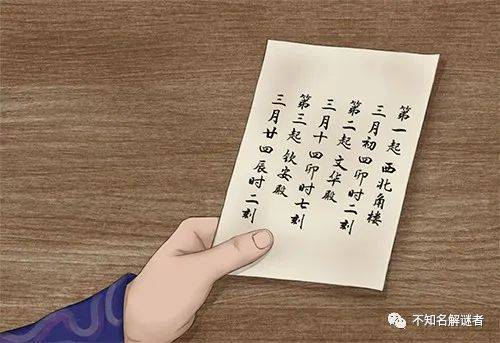 第一起 西北角楼
三月初四卯时二刻
第二起 文华殿
三月十四卯时七刻
第三起 钦安殿
三月廿四辰时二刻
不知名解谜者